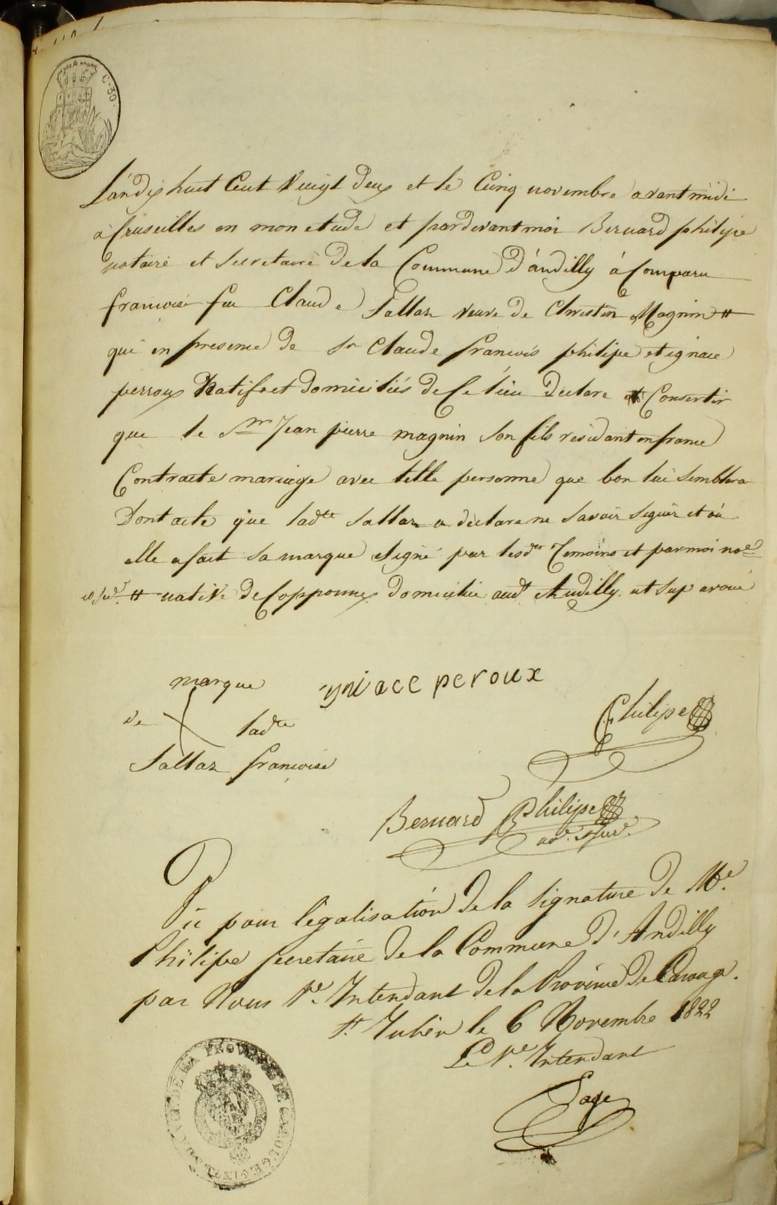 C. 30
L'andix huit Cent Vingt deux et le Cinq novembre avant midi
à Cruseilles en mon etude et pardevant moi Bernard philipe
notaire et Secretaire de la Commune d'andilly à Comparu
francoise feu Claude Sallaz veuve de Christin Magnin #
qui en presence de Sr Claude françois philipe et ignace
perroux Natifs et domiciliés de Ce lieu declare Consentir
que le Sr Jean pierre magnin Son fils residant en france
Contracte mariage avec telle personne que bon lui Semblera
Dont acte que ladte Sallaz a déclaré ne Savoir Signer et où
elle a fait Sa marque et Signé par lesdts Temoins et par moi nore
et Secre # native de Copponnex domiciliée audt Andilly ut Sup avoué
marque
de ladte
Sallaz françoise
yniace peroux
Philipe
Bernard Philipe
Vû pour légalisation de la Signature de Me
Philipe Secretaire de la Commune d'Andilly
par Nous Ve Intendant de la Province de Carouge.
St Julien le 6 Novembre 1822
Le Ve Intendant
Page
DE LA PROVINCE DE CAROUGE